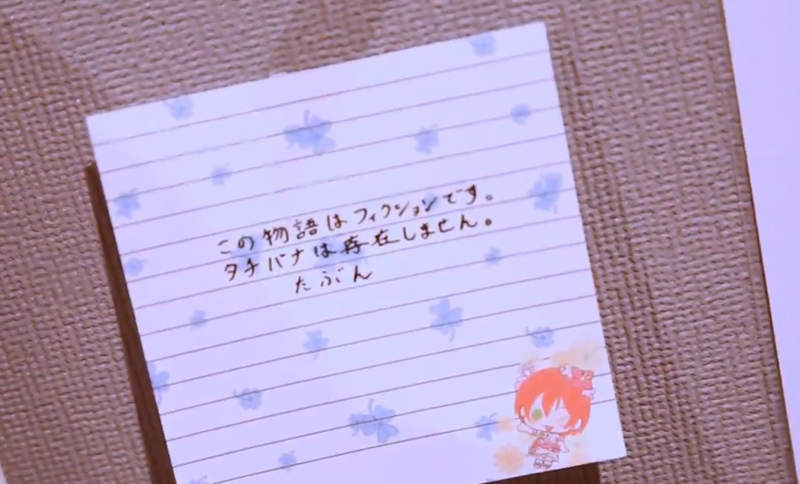 この物語はフィクションです。
タチバナは存在しません。
たぶん